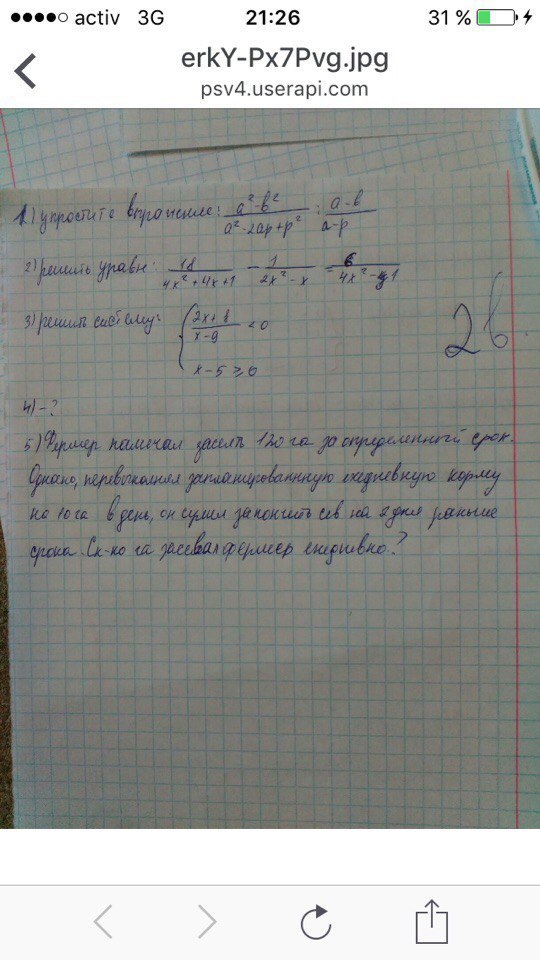 activ 3G 21:26 31 %
erkY-Px7Pvg.jpg
psv4.userapi.com
1) упростите выражение: (a²-b²)/(a²-2ap+p²) : (a-b)/(a-p)
2) решить уравн: 18/(4x²+4x+1) - 1/(2x²-x) = 6/(4x²-1)
3) решить систему: { (2x+8)/(x-9) < 0
x-5 ≥ 0
2в.
4) -?
5) Фермер намечал засеять 120 га за определенный срок.
Однако, перевыполняя запланированнную ежедневную норму
на 10 га в день, он сумел закончить сев на 2 дня раньше
срока. Ск-ко га засевал фермер ежедневно?